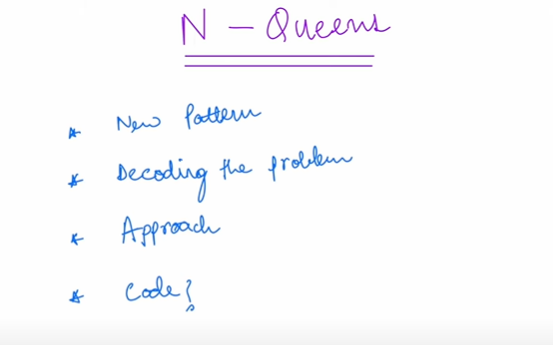 N - Queens
* New Pattern
* Decoding the problem
* Approach
* Code?